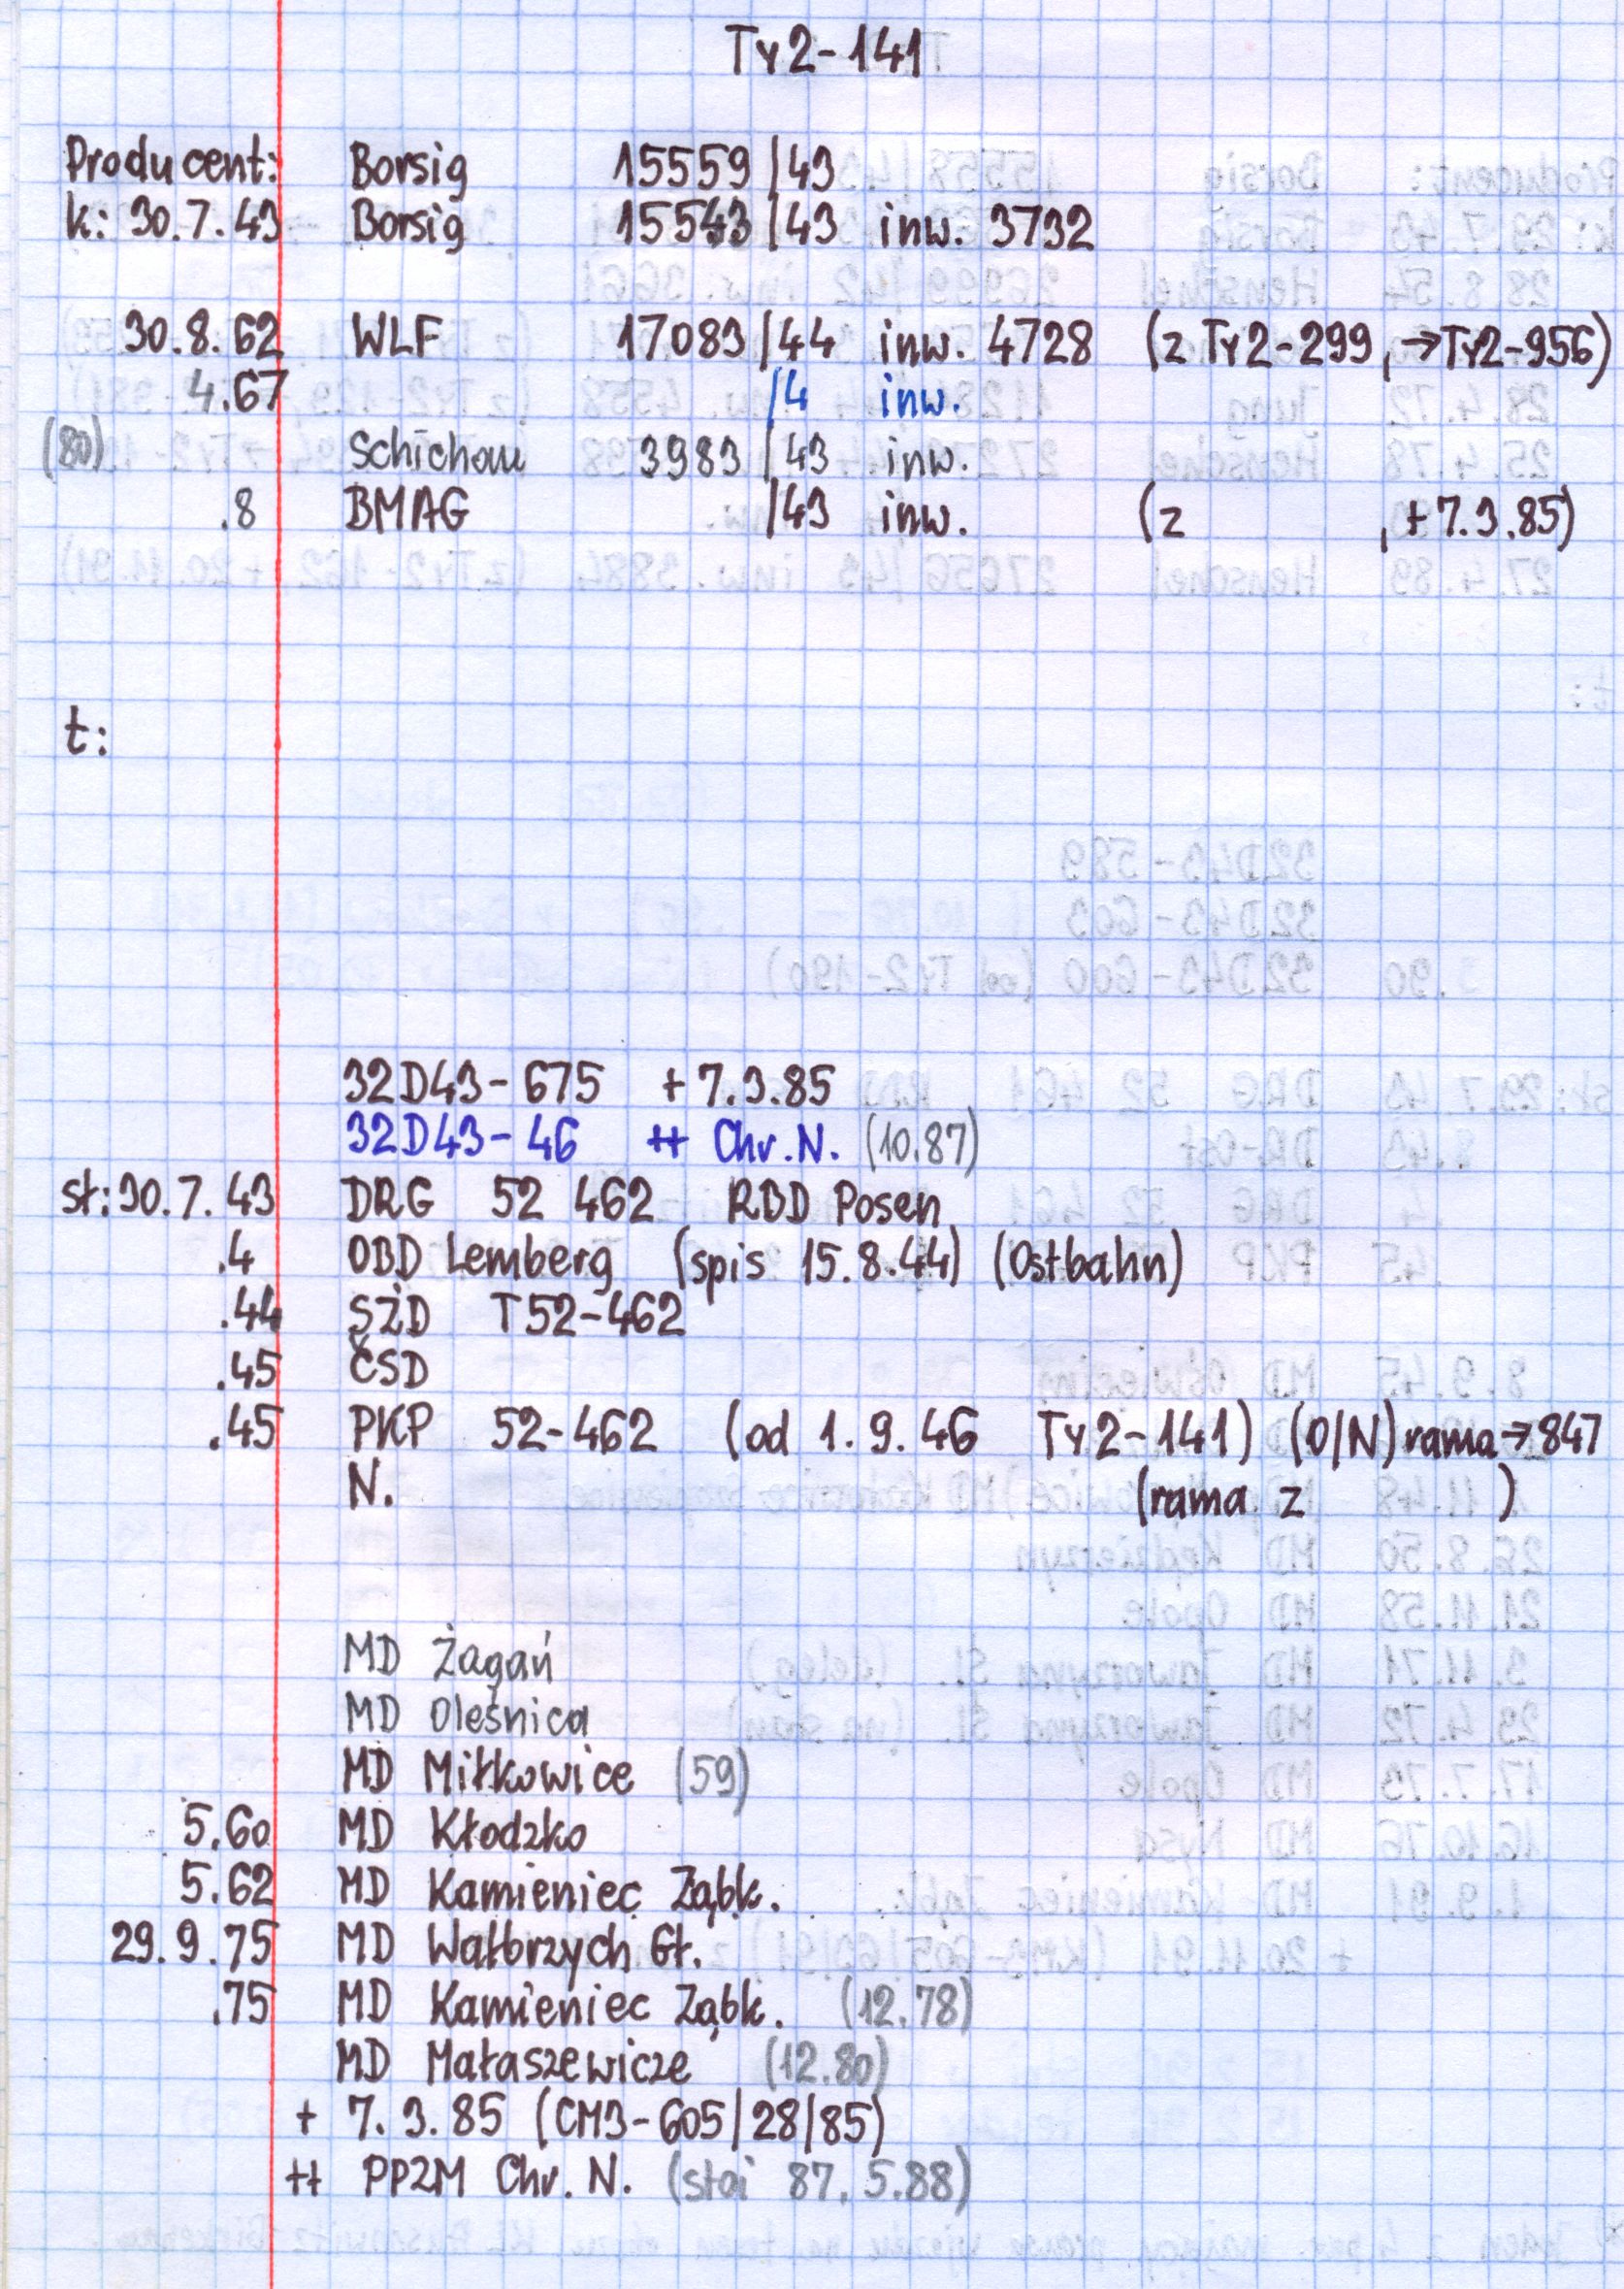 Ty2-141
Producent: Borsig 15559/43
k: 30.7.43 Borsig 15543/43 inw. 3732
30.8.62 WLF 17083/44 inw. 4728 (z Ty2-299, →Ty2-956)
4.67 /4 inw.
(80) Schichau 3983/43 inw.
.8 BMAG /43 inw. (z , +7.3.85)
t:
32D43-675 +7.3.85
32D43-46 ++ Chr.N. (10.87)
st: 30.7.43 DRG 52 462 RBD Posen
.4 OBD Lemberg (spis 15.8.44) (Ostbahn)
.44 SŻD T52-462
.45 ČSD
.45 PKP 52-462 (od 1.9.46 Ty2-141) (O/N) rama→847
N. (rama z )
MD Żagań
MD Oleśnica
MD Miłkowice (59)
5.60 MD Kłodzko
5.62 MD Kamieniec Ząbk.
29.9.75 MD Wałbrzych Gł.
.75 MD Kamieniec Ząbk. (12.78)
MD Małaszewicze (12.80)
+ 7.3.85 (CM3-605/28/85)
++ PPZM Chr. N. (stoi 87, 5.88)